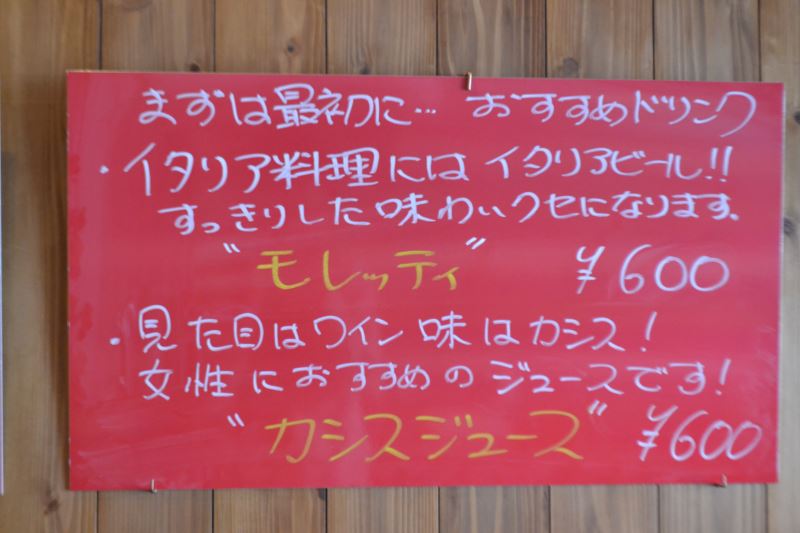 まずは最初に… おすすめドリンク
・イタリア料理にはイタリアビール!!
すっきりした味わいクセになります。
"モレッティ" ¥600
・見た目はワイン味はカシス!
女性におすすめのジュースです!
"カシスジュース" ¥600